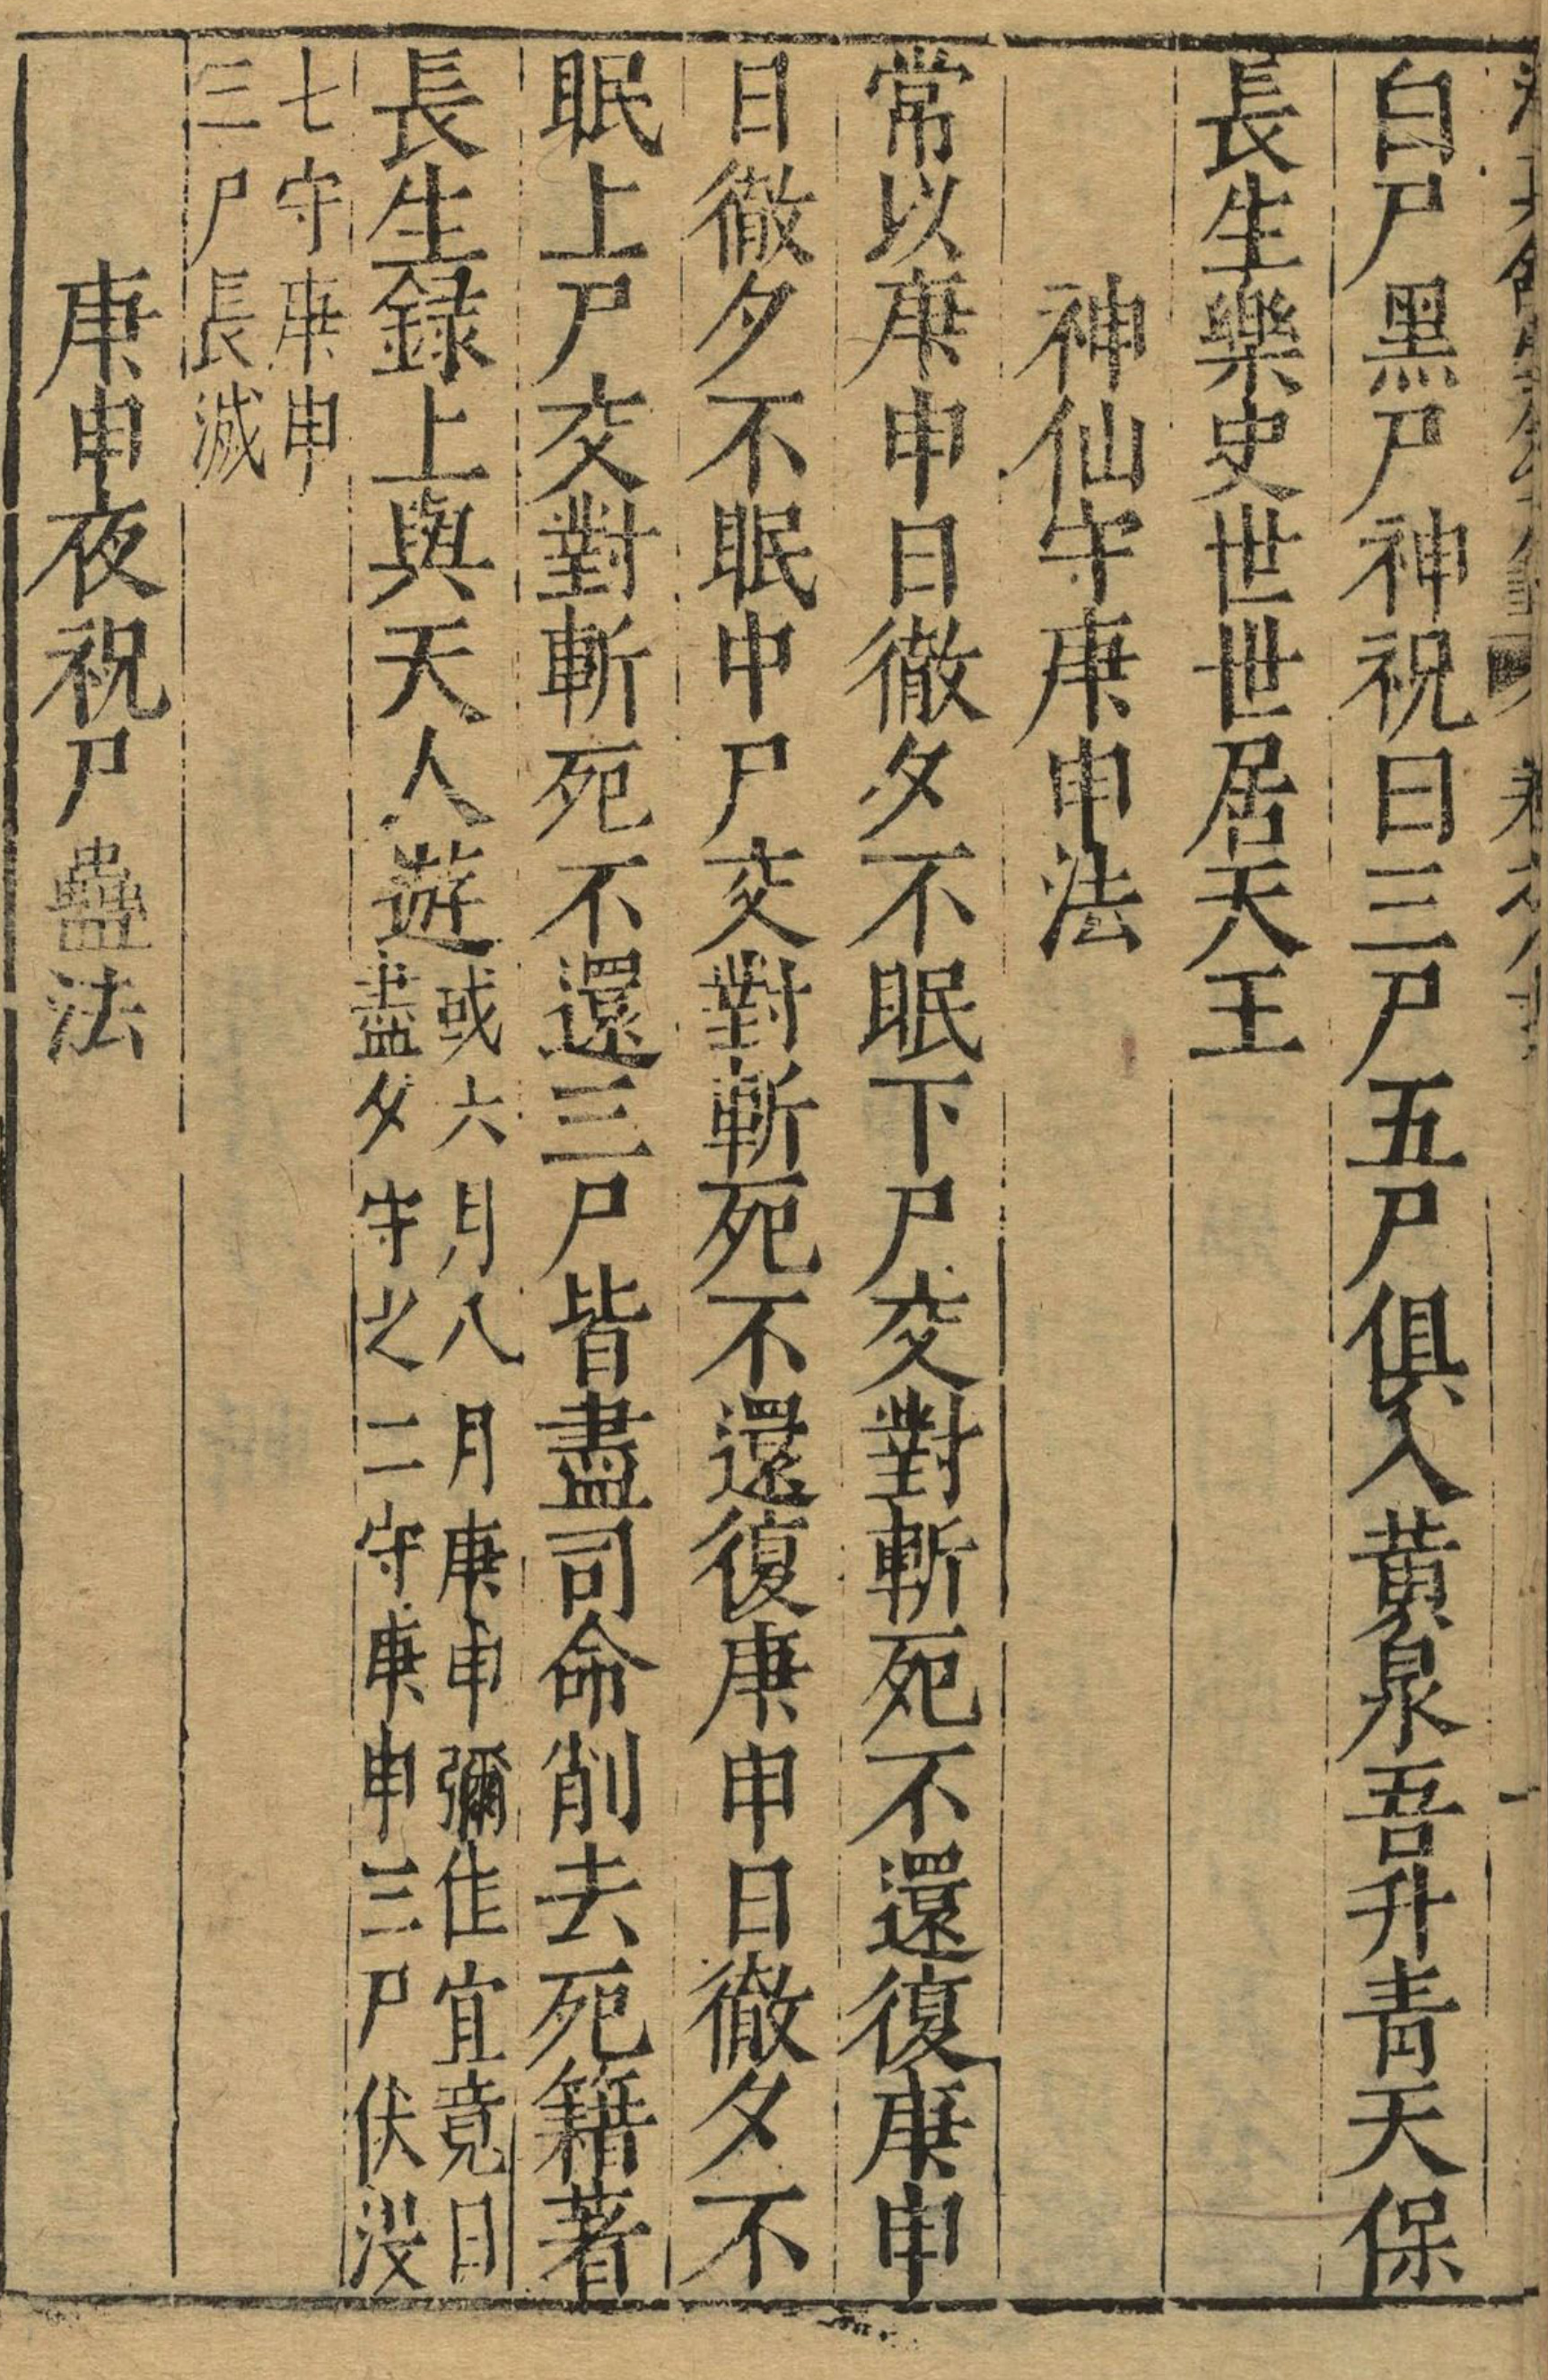 白尸黑尸神祝曰三尸五尸俱入黄泉吾升青天保
長生樂史世世居天王
神仙守庚申法
常以庚申日徹夕不眠下尸交對斬死不還復庚申
日徹夕不眠中尸交對斬死不還復庚申日徹夕不
眠上尸交對斬死不還三尸皆盡司命削去死籍著
長生録上與天人遊
或六月八月庚申彌佳宜竟日
盡夕守之二守庚申三尸伏没
七守庚申
三尸長滅
庚申夜祝尸蠱法